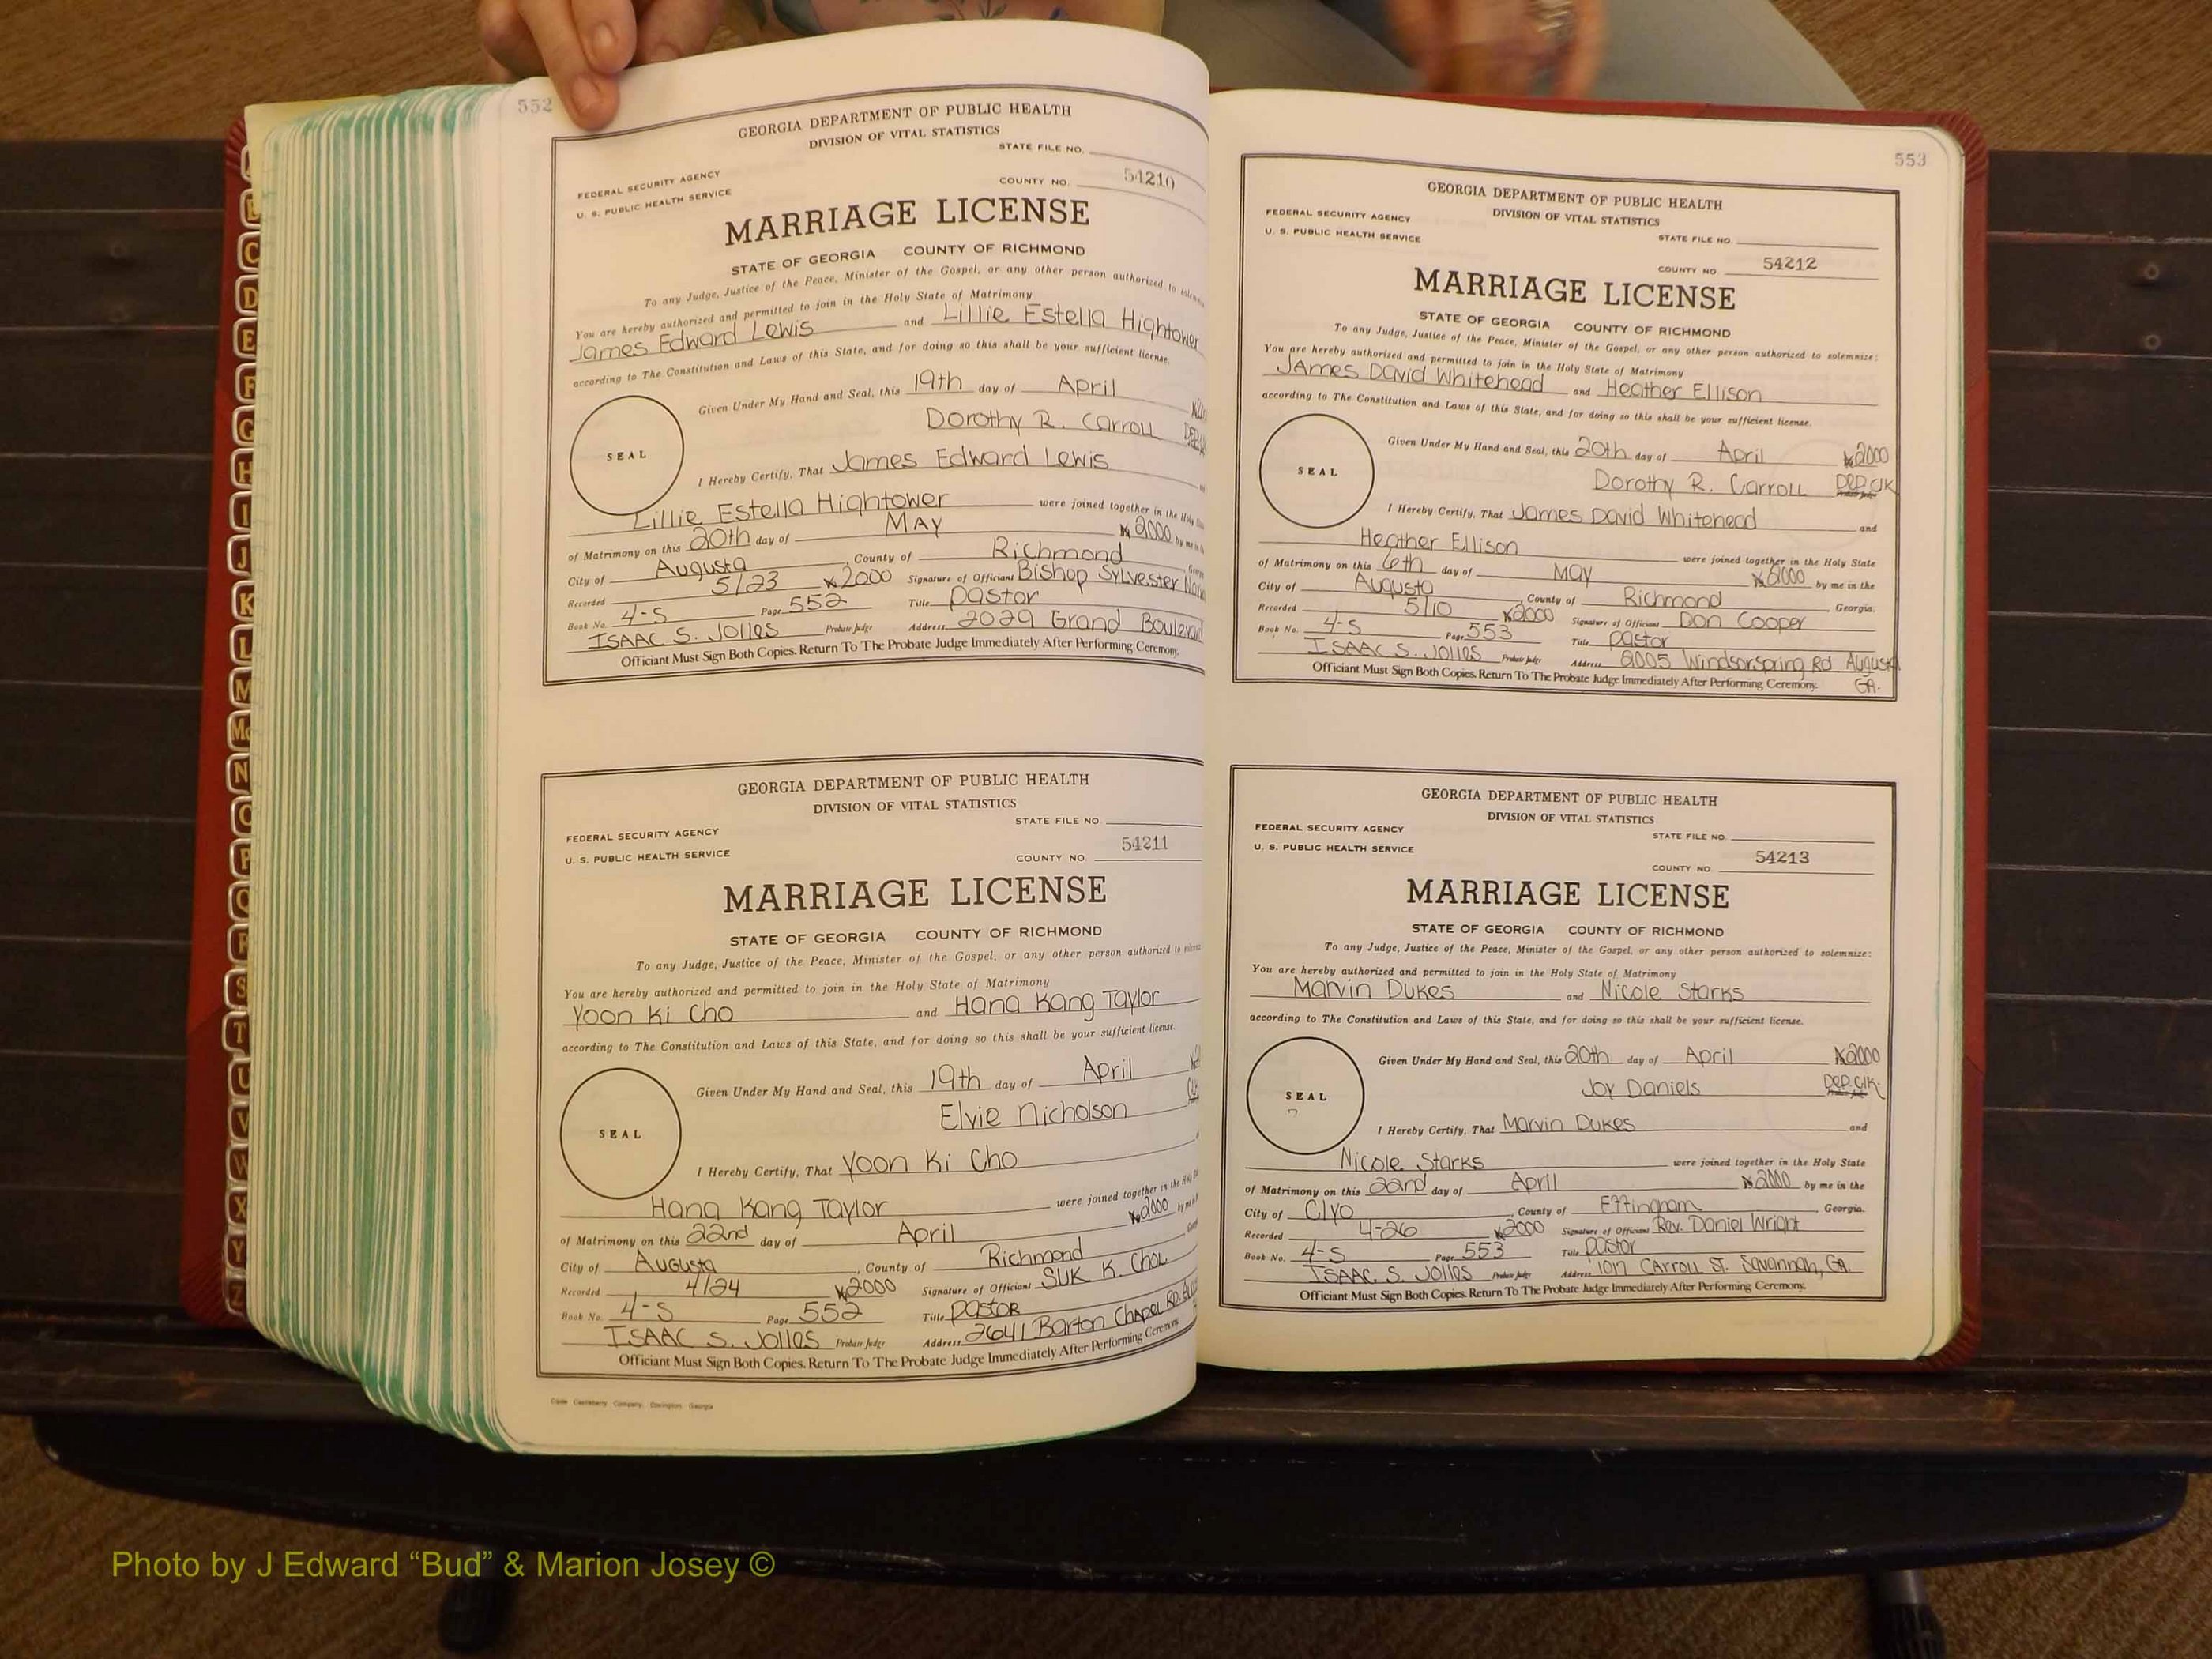 552
GEORGIA DEPARTMENT OF PUBLIC HEALTH
DIVISION OF VITAL STATISTICS
STATE FILE NO.
FEDERAL SECURITY AGENCY
U. S. PUBLIC HEALTH SERVICE
COUNTY NO. 54210
MARRIAGE LICENSE
STATE OF GEORGIA COUNTY OF RICHMOND
To any Judge, Justice of the Peace, Minister of the Gospel, or any other person authorized to
You are hereby authorized and permitted to join in the Holy State of Matrimony
James Edward Lewis and Lillie Estella Hightower
according to The Constitution and Laws of this State, and for doing so this shall be your sufficient license.
Given Under My Hand and Seal, this 19th day of April
Dorothy R. Carroll
SEAL
I Hereby Certify, That James Edward Lewis
Lillie Estella Hightower were joined together in the Holy
of Matrimony on this 20th day of May 2000 by me in
City of Augusta, County of Richmond
Recorded 5/23 2000 Signature of Officiant Bishop Sylvester
Book No. 4-S Page 552 Title Pastor
ISAAC S. Jolles Probate Judge Address 2029 Grand Boulevard
Officiant Must Sign Both Copies. Return To The Probate Judge Immediately After Performing Ceremony.
GEORGIA DEPARTMENT OF PUBLIC HEALTH
DIVISION OF VITAL STATISTICS
STATE FILE NO.
FEDERAL SECURITY AGENCY
U. S. PUBLIC HEALTH SERVICE
COUNTY NO. 54211
MARRIAGE LICENSE
STATE OF GEORGIA COUNTY OF RICHMOND
To any Judge, Justice of the Peace, Minister of the Gospel, or any other person authorized to
You are hereby authorized and permitted to join in the Holy State of Matrimony
Yoon Ki Cho and Hana Kang Taylor
according to The Constitution and Laws of this State, and for doing so this shall be your sufficient license.
Given Under My Hand and Seal, this 19th day of April
Elvie Nicholson
SEAL
I Hereby Certify, That Yoon Ki Cho
Hana Kang Taylor were joined together in the Holy
of Matrimony on this 22nd day of April 2000 by me in
City of Augusta, County of Richmond
Recorded 4/24 2000 Signature of Officiant SUK K. Choi
Book No. 4-S Page 552 Title Pastor
ISAAC S. Jolles Probate Judge Address 2641 Barton Chapel Rd.
Officiant Must Sign Both Copies. Return To The Probate Judge Immediately After Performing Ceremony.
Company, Covington, Georgia
553
GEORGIA DEPARTMENT OF PUBLIC HEALTH
DIVISION OF VITAL STATISTICS
FEDERAL SECURITY AGENCY
U. S. PUBLIC HEALTH SERVICE
STATE FILE NO.
COUNTY NO. 54212
MARRIAGE LICENSE
STATE OF GEORGIA COUNTY OF RICHMOND
To any Judge, Justice of the Peace, Minister of the Gospel, or any other person authorized to solemnize:
You are hereby authorized and permitted to join in the Holy State of Matrimony
James David Whitehead and Heather Ellison
according to The Constitution and Laws of this State, and for doing so this shall be your sufficient license.
Given Under My Hand and Seal, this 20th day of April 2000
Dorothy R. Carroll Dep. Clk
SEAL
I Hereby Certify, That James David Whitehead and
Heather Ellison were joined together in the Holy State
of Matrimony on this 6th day of May 2000 by me in the
City of Augusta, County of Richmond, Georgia.
Recorded 5/10 2000 Signature of Officiant Don Cooper
Book No. 4-S Page 553 Title Pastor
ISAAC S. Jolles Probate Judge Address 2005 Windsorspring Rd Augusta
GA.
Officiant Must Sign Both Copies. Return To The Probate Judge Immediately After Performing Ceremony.
GEORGIA DEPARTMENT OF PUBLIC HEALTH
DIVISION OF VITAL STATISTICS
FEDERAL SECURITY AGENCY
U. S. PUBLIC HEALTH SERVICE
STATE FILE NO.
COUNTY NO. 54213
MARRIAGE LICENSE
STATE OF GEORGIA COUNTY OF RICHMOND
To any Judge, Justice of the Peace, Minister of the Gospel, or any other person authorized to solemnize:
You are hereby authorized and permitted to join in the Holy State of Matrimony
Marvin Dukes and Nicole Starks
according to The Constitution and Laws of this State, and for doing so this shall be your sufficient license.
Given Under My Hand and Seal, this 20th day of April 2000
Joy Daniels Dep. Clk.
SEAL
I Hereby Certify, That Marvin Dukes and
Nicole Starks were joined together in the Holy State
of Matrimony on this 22nd day of April 2000 by me in the
City of Clyo, County of Effingham, Georgia.
Recorded 4-26 2000 Signature of Officiant Rev. Daniel Wright
Book No. 4-S Page 553 Title Pastor
ISAAC S. Jolles Probate Judge Address 1017 Carroll St. Savannah, GA.
Officiant Must Sign Both Copies. Return To The Probate Judge Immediately After Performing Ceremony.
C
D
E
F
G
H
I
J
K
L
M
Mc
N
O
P
Q
R
S
T
U
V
W
X
Y
Z
Photo by J Edward “Bud” & Marion Josey ©